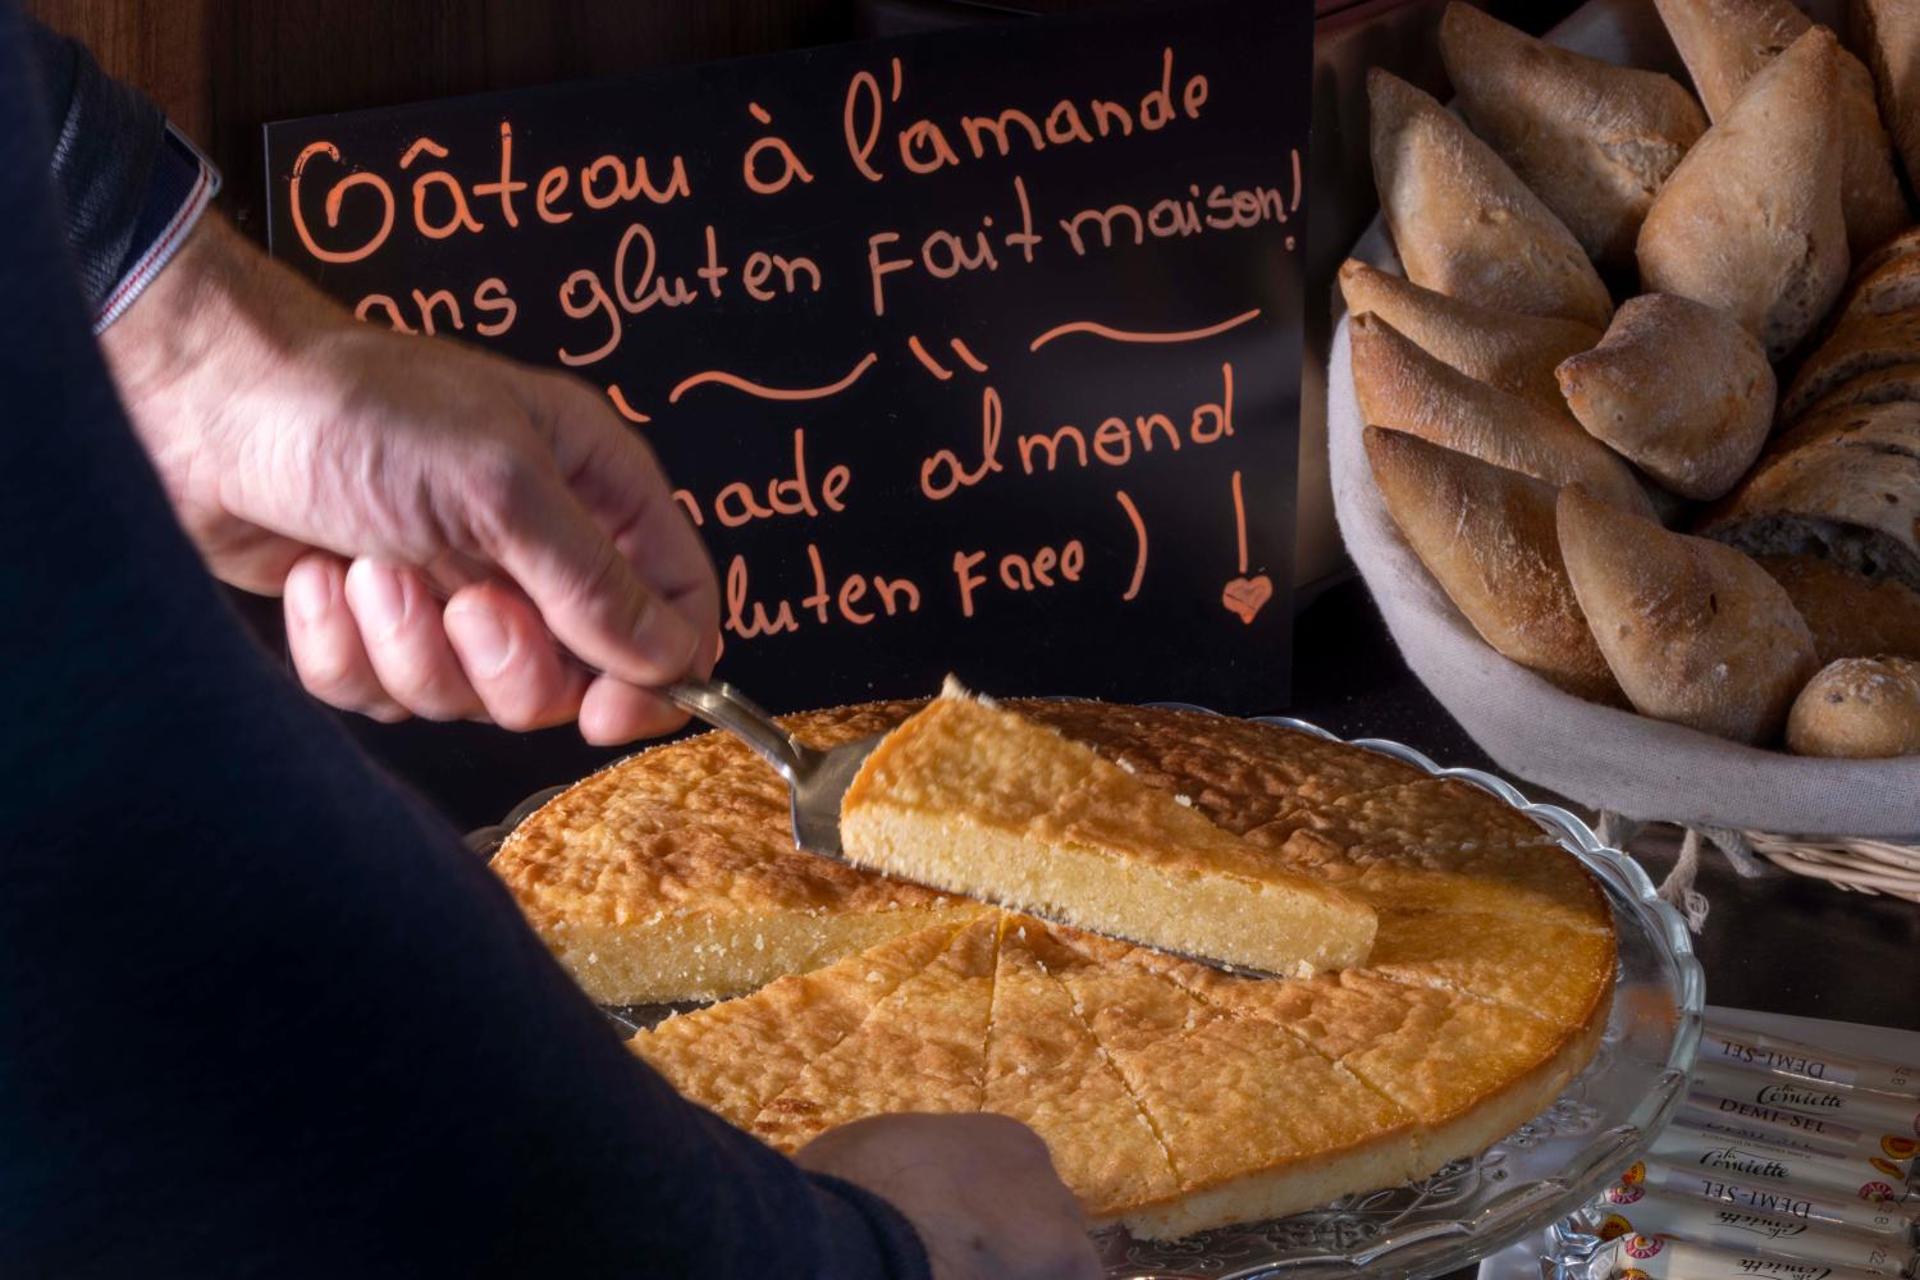 Gâteau à l'amande
ans gluten Fait maison!
made almond
luten Free) !
DEMI-SEL
la Conviette
DEMI-SEL
la Conviette
DEMI-SEL
Conviette
Conviette